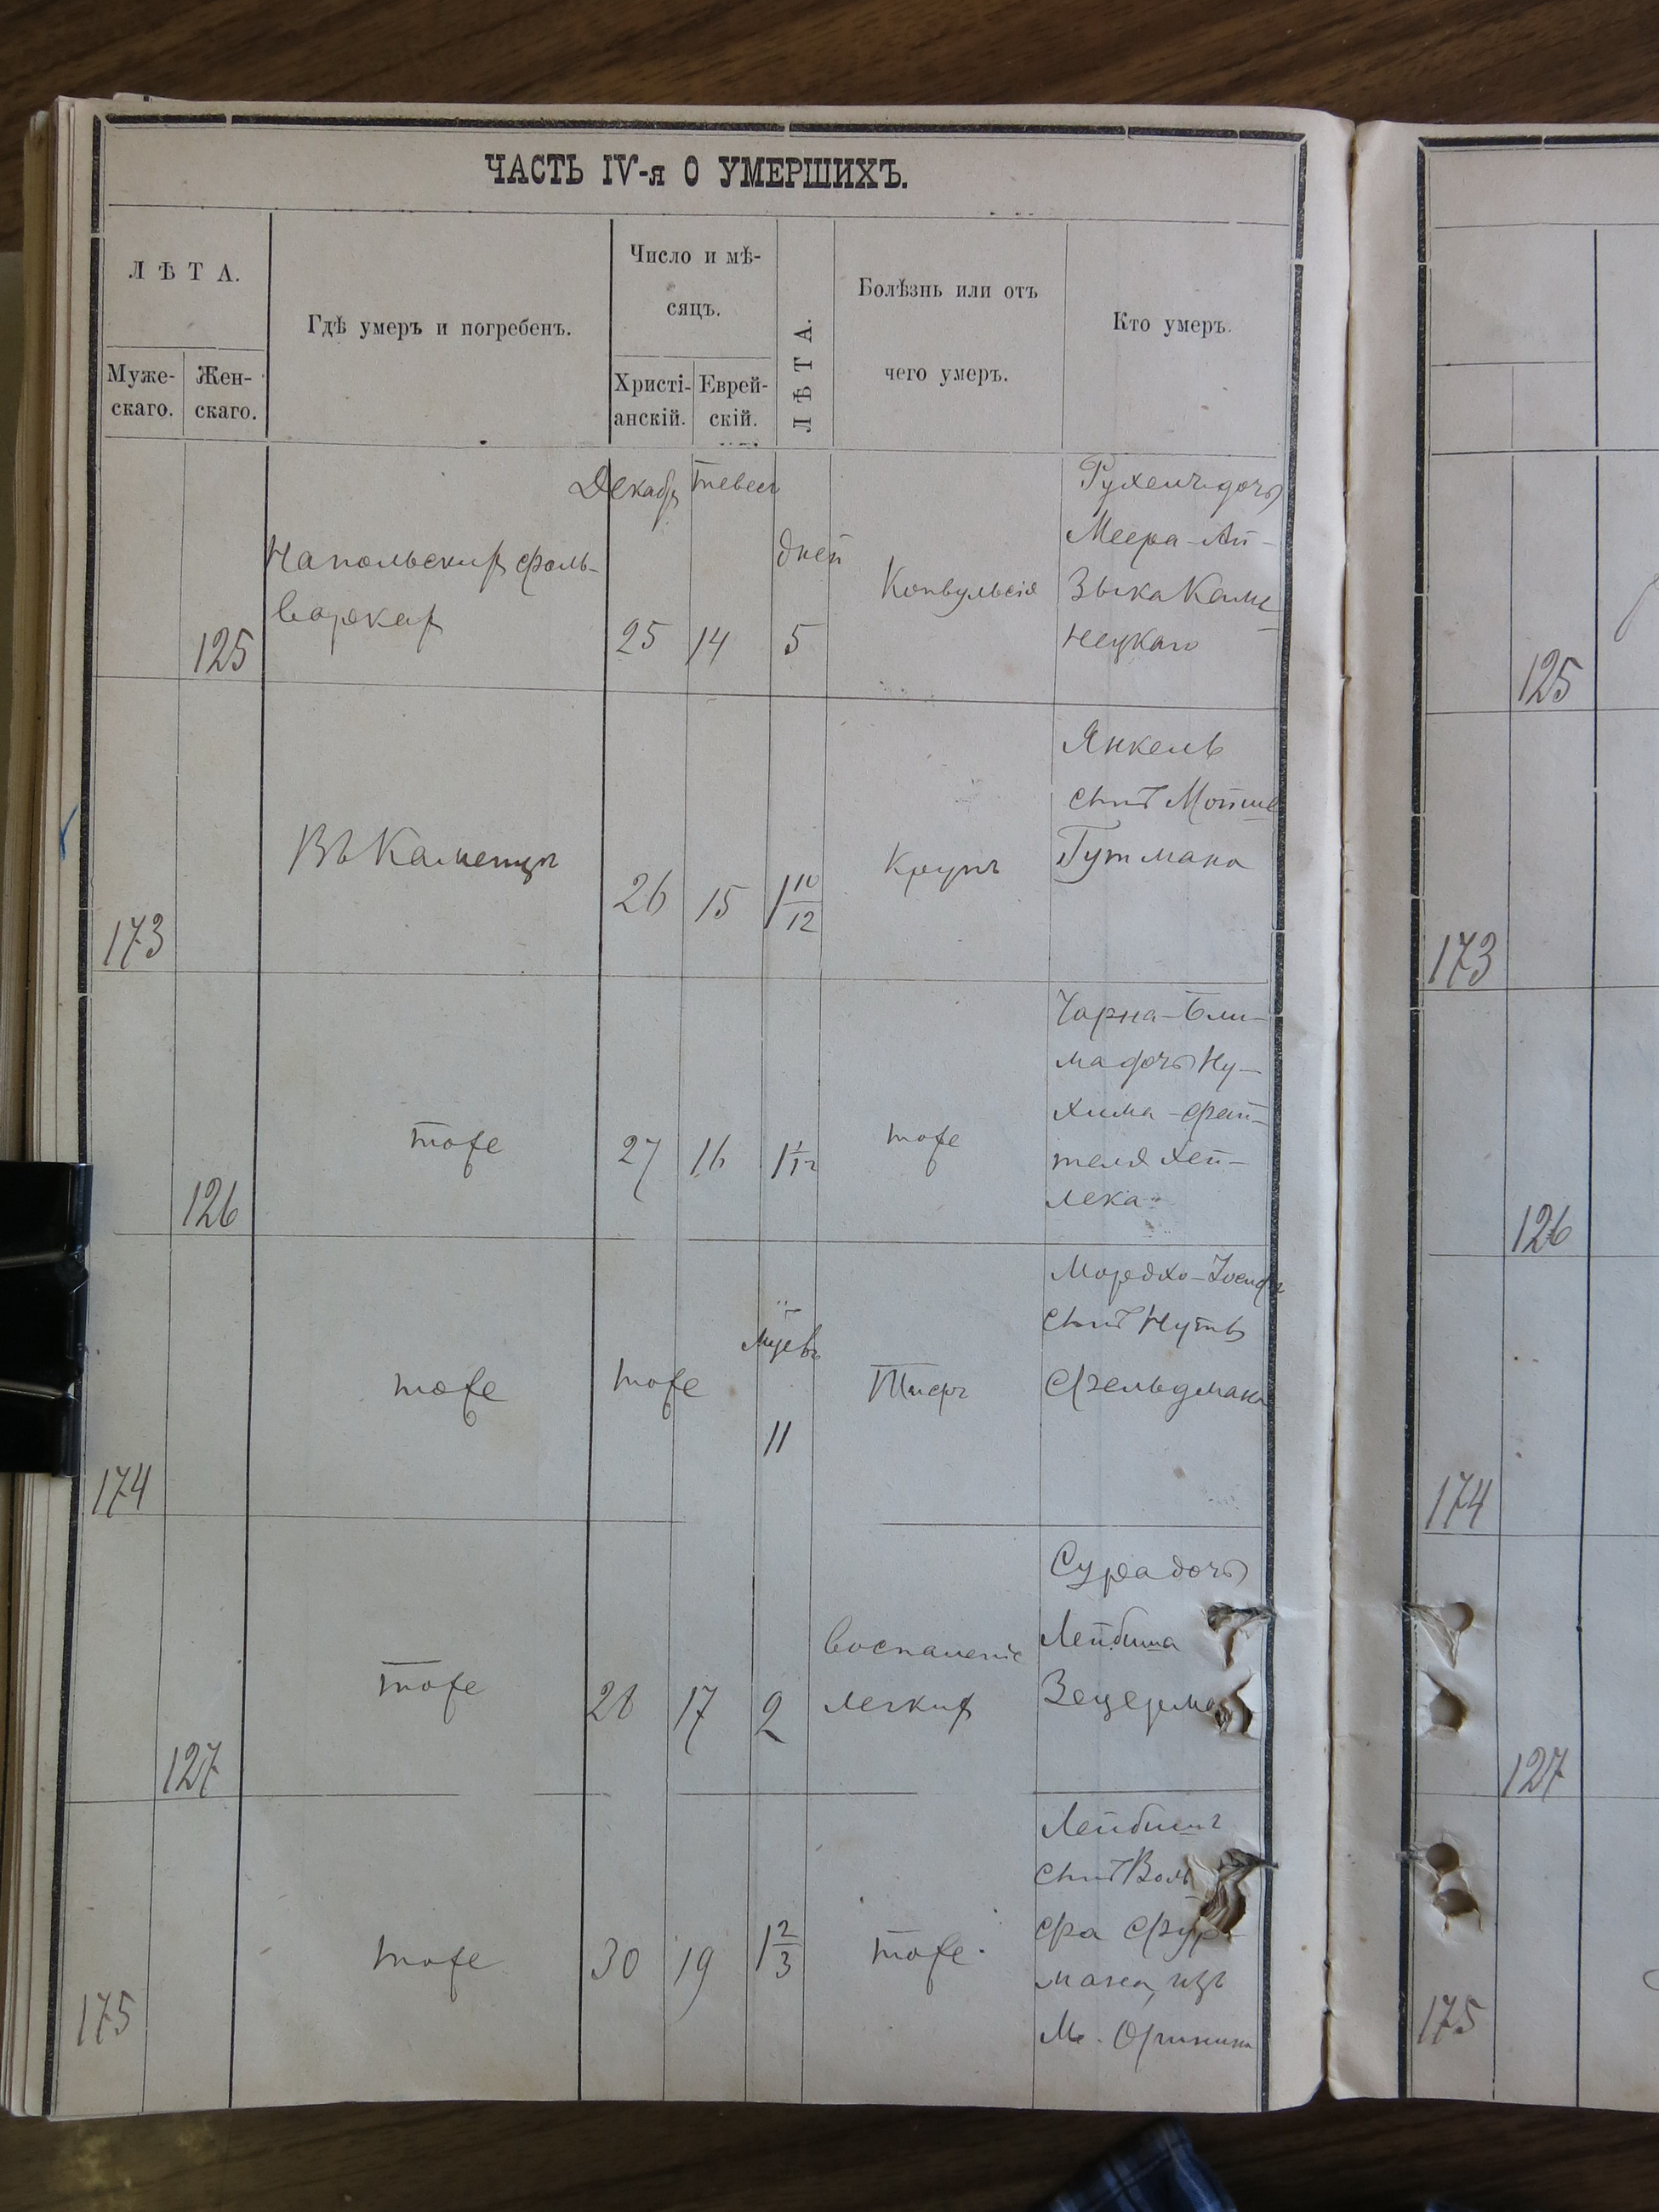 ЧАСТЬ IV-я О УМЕРШИХЪ.
ЛѢТА.
Муже-
скаго.
Жен-
скаго.
Гдѣ умеръ и погребенъ.
Число и мѣ-
сяцъ.
Христі-
анскій.
Еврей-
скій.
ЛѢТА.
Болѣзнь или отъ
чего умеръ.
Кто умеръ.
125
На польских фоль-
варках
Декабр
25
Тевес
14
дней
5
Конвульсія
Рухель дочь
Меера-Ай-
Зыка Каме
нецкаго
173
Въ Каменцѣ
26
15
1 10/12
Крупъ
Янкель
сынъ Мойше
Гутмана
126
тоже
27
16
1 1/12
тоже
Чарна-Бли-
ма дочь Ну-
хима-Фай-
теля Хей-
лека
174
тоже
тоже
Мцевъ
11
Тифъ
Мордхо-Іосифъ
сынъ Нутъ
Фельдмана
127
тоже
28
17
2
Воспаленіе
легких
Сура дочь
Лейбиша
175
тоже
30
19
1 2/3
тоже
Лейбишъ
сынъ Воль
фа Фур-
мана, изъ
М. Оринина
125
173
126
174
127
175